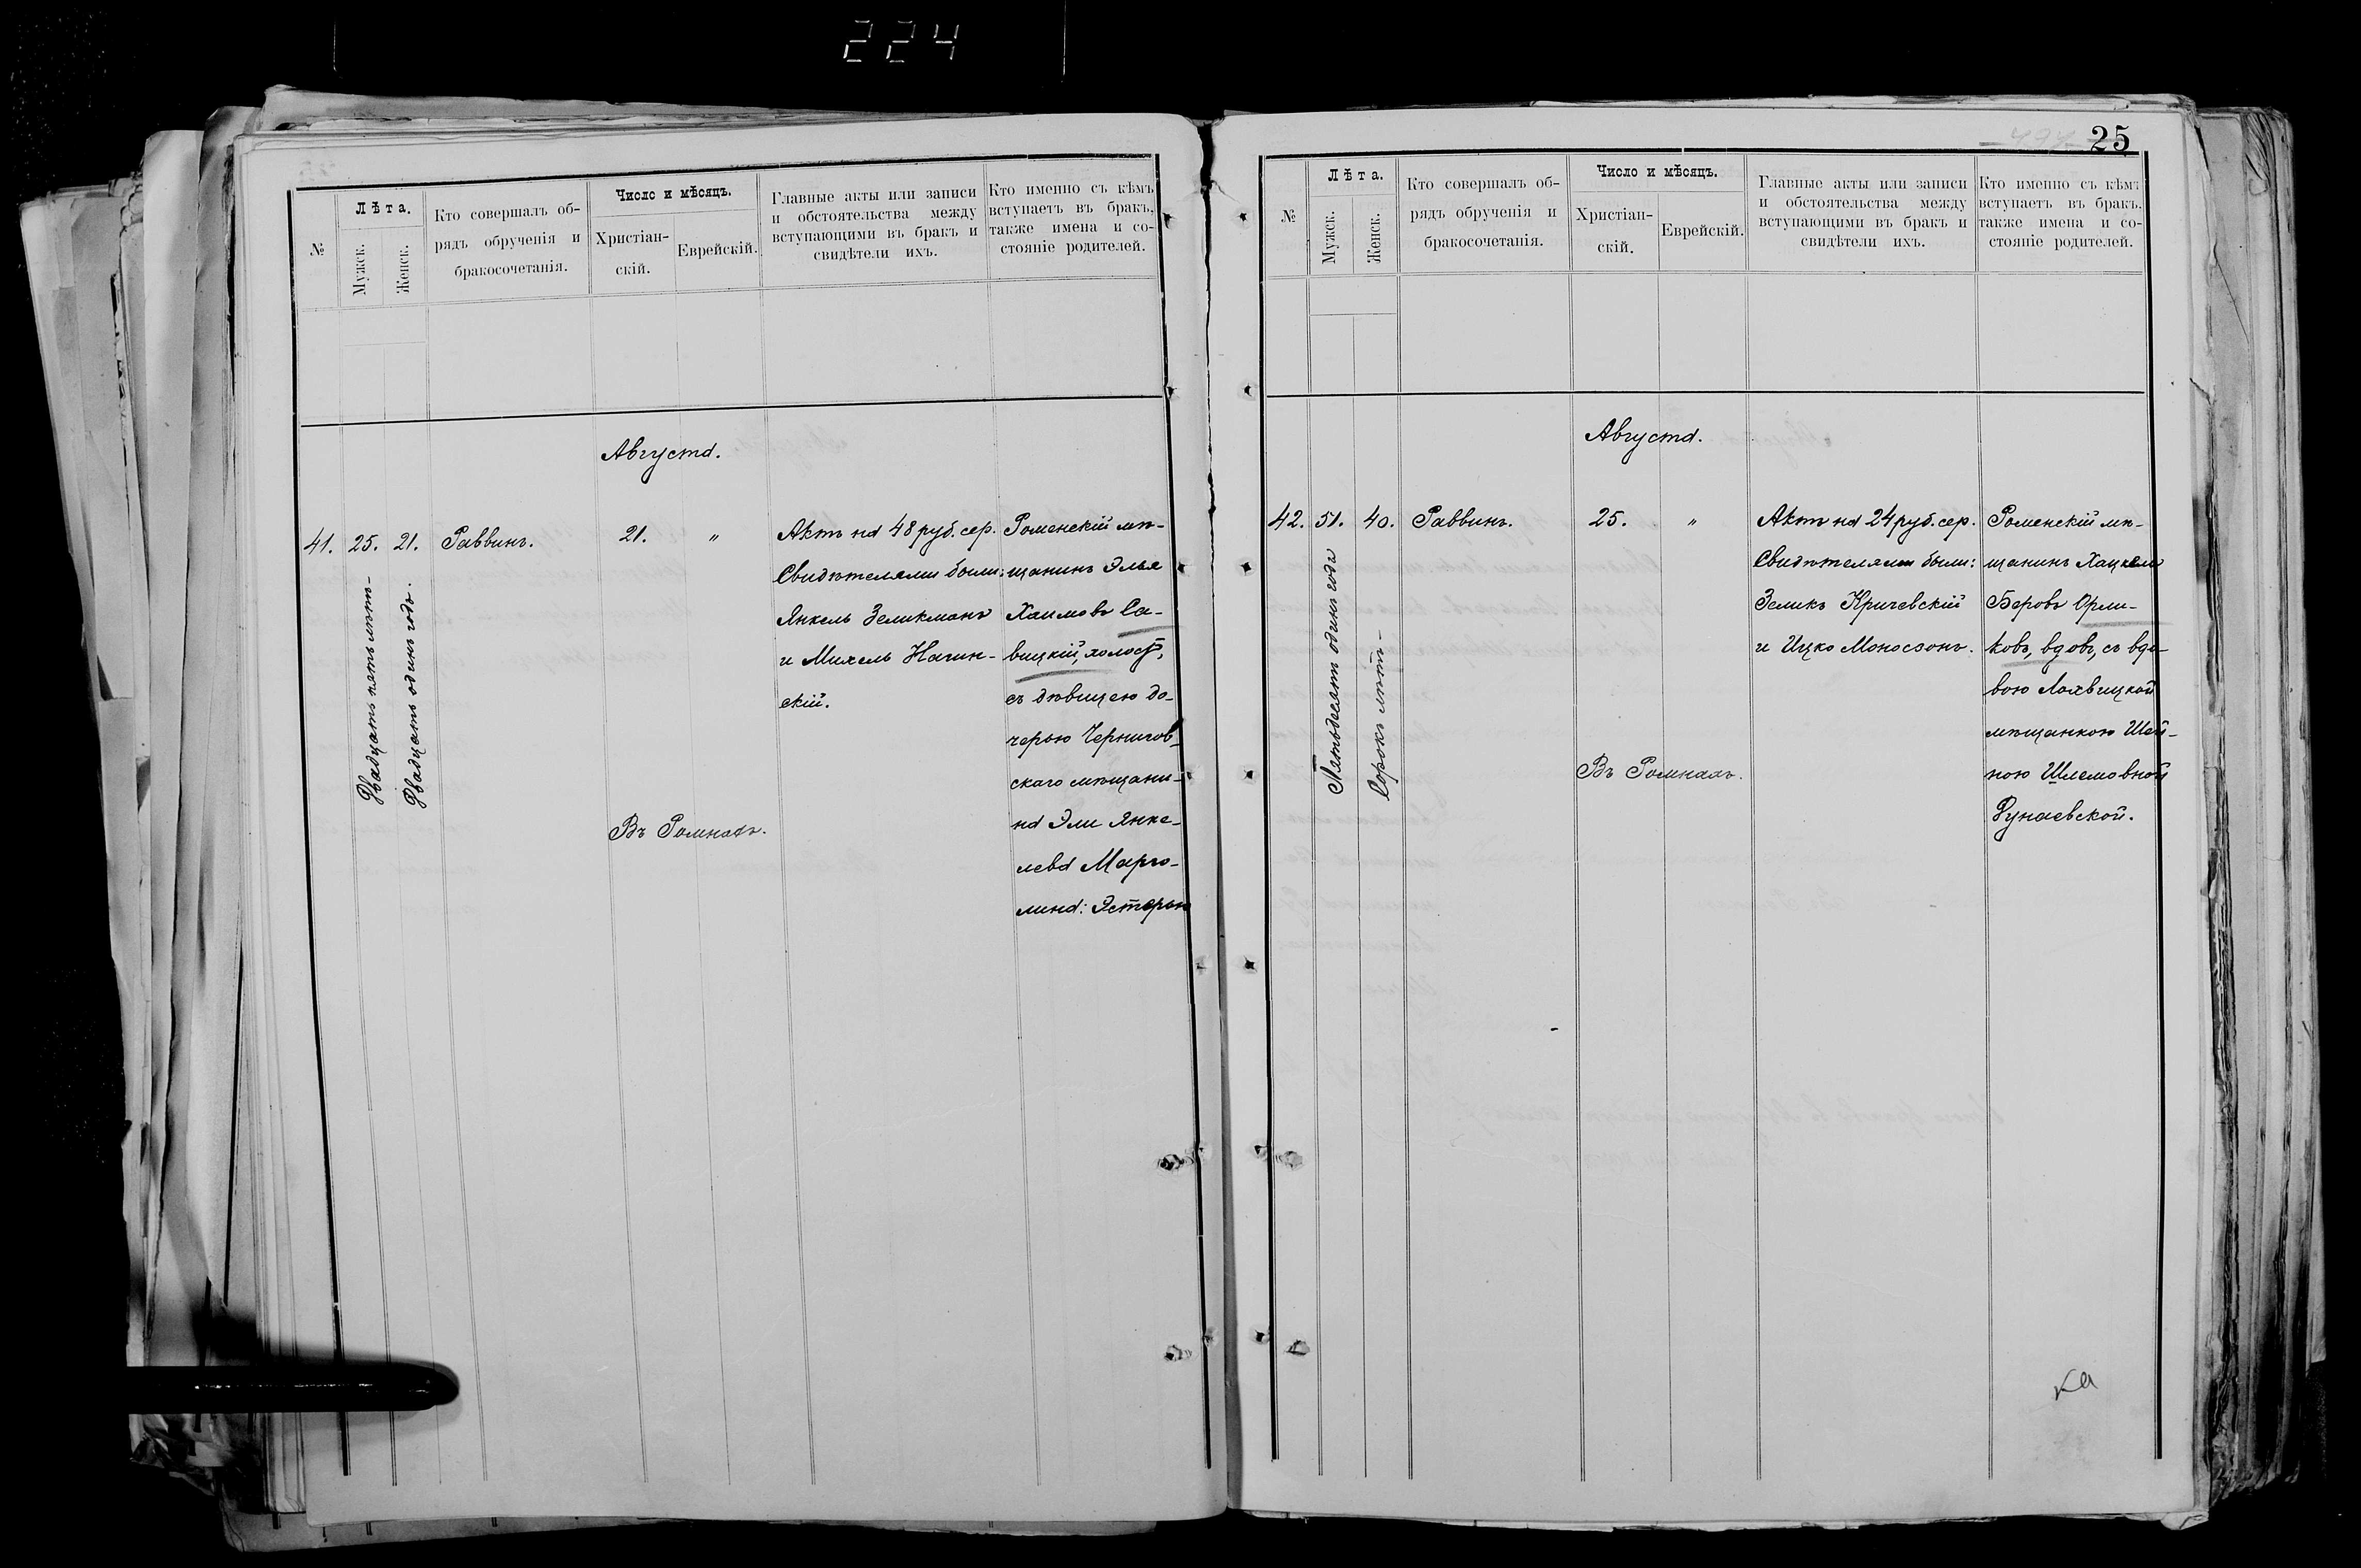 224
№
Лѣта.
Мужск.
Женск.
Кто совершалъ об-
рядъ обрученія и
бракосочетанія.
Число и мѣсяцъ.
Христіан-
скій.
Еврейскій.
Главные акты или записи
и обстоятельства между
вступающими въ бракъ и
свидѣтели ихъ.
Кто именно съ кѣмъ
вступаетъ въ бракъ,
также имена и со-
стояніе родителей.
Августа.
41. 25. 21. Раввинъ. 21. "
Двадцать пять лѣтъ
Двадцать одинъ годъ.
Въ Ромнахъ.
Актъ на 48 руб. сер.
Свидѣтелями были:
Янкель Зеликманъ
и Михель Нагин-
скій.
Роменскій мѣ-
щанинъ Элья
Хаимовъ Са-
вицкій, холост,
съ дѣвицею до-
черью Чернигов-
скаго мѣщани-
на Эли Янке-
лева Марго-
лина: Эстерью
25
№
Лѣта.
Мужск.
Женск.
Кто совершалъ об-
рядъ обрученія и
бракосочетанія.
Число и мѣсяцъ.
Христіан-
скій.
Еврейскій.
Главные акты или записи
и обстоятельства между
вступающими въ бракъ и
свидѣтели ихъ.
Кто именно съ кѣмъ
вступаетъ въ бракъ,
также имена и со-
стояніе родителей.
Августа.
42. 51. 40. Раввинъ. 25. "
Пятьдесятъ одинъ года
Сорокъ лѣтъ
Въ Ромнахъ.
Актъ на 24 руб. сер.
Свидѣтелями были:
Зеликъ Кричевскій
и Ицко Моносзонъ.
Роменскій мѣ-
щанинъ Хацкель
Беровъ Орли-
ковъ, вдовъ, съ вдо-
вою Лохвицкой
мѣщанкою Шей-
ною Шлемовной
Дунаевской.